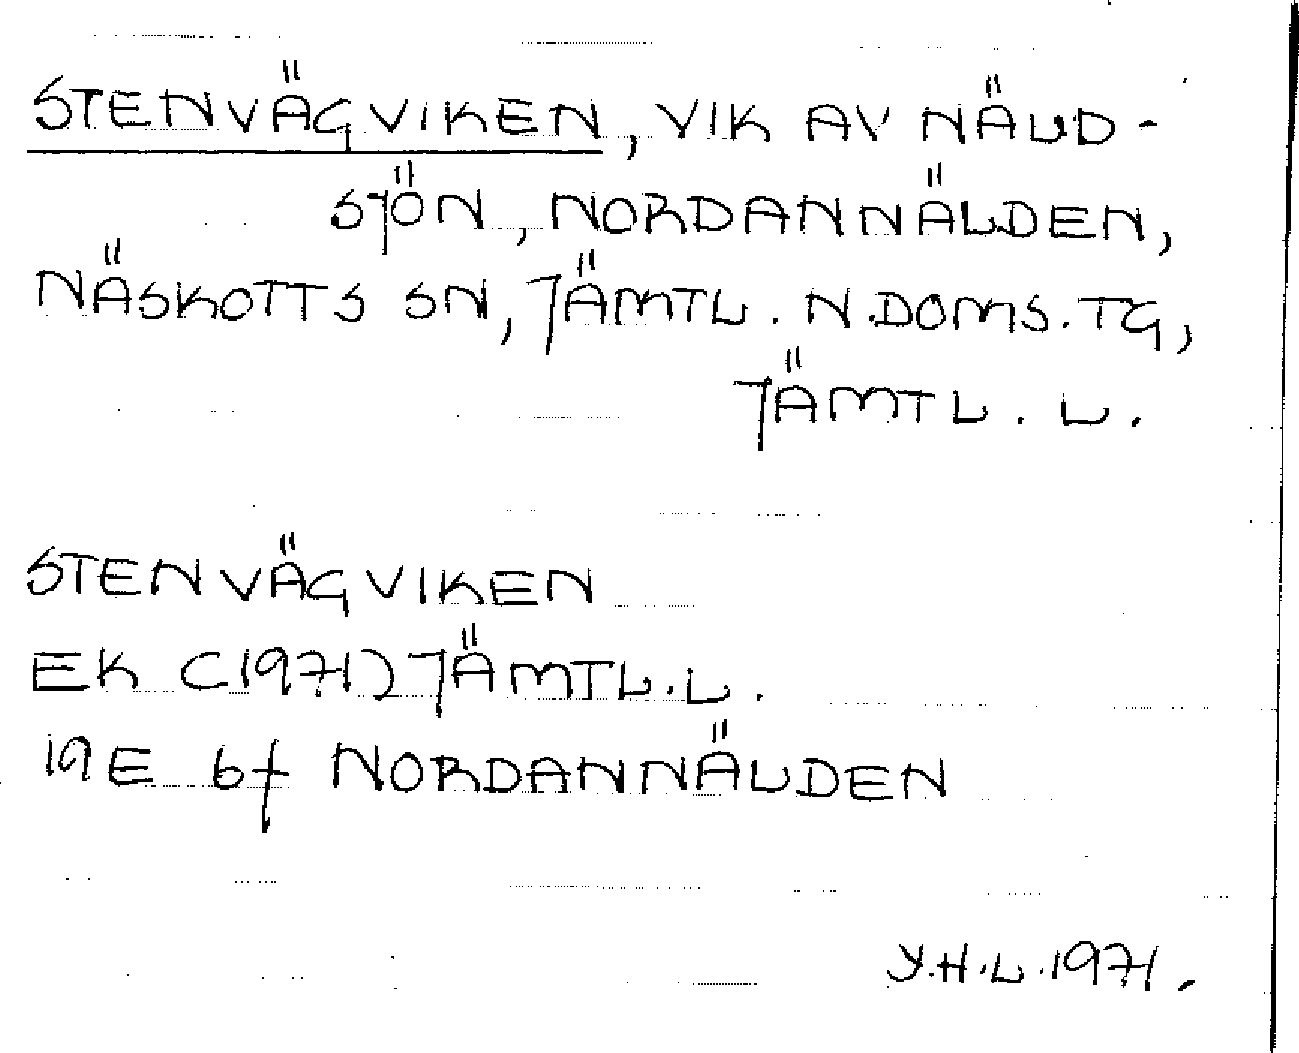 STENVÄGVIKEN, VIK AV NÄLD-
SJÖN, NORDANNÄLDEN,
NÄSKOTTS SN, JÄMTL. N.DOMS.TG,
JÄMTL. L.
STENVÄGVIKEN
EK (1971) JÄMTL.L.
19E 6f NORDANNÄLDEN
Y.H.L.1971.